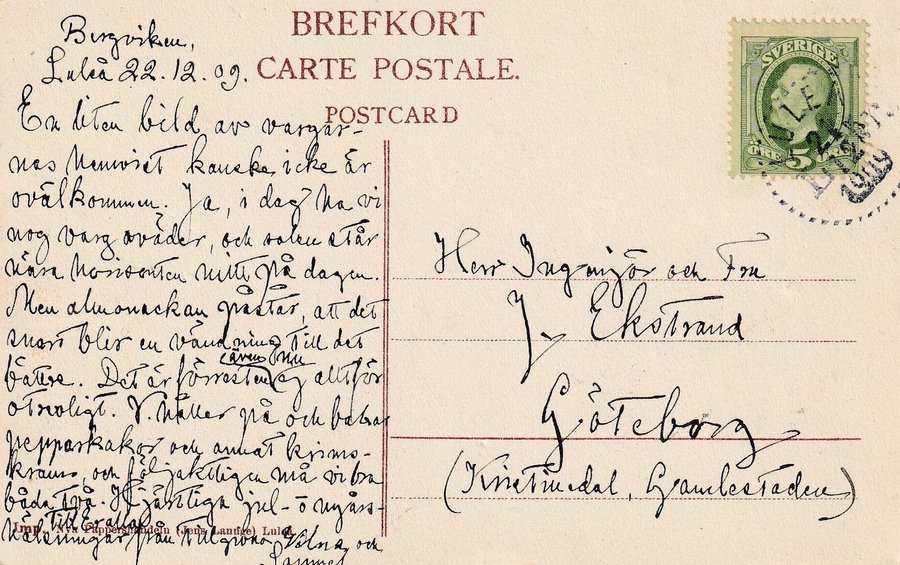 BREFKORT
CARTE POSTALE.
POSTCARD
Bergviken,
Luleå 22.12.09.
En liten bild av vargar-
nas hemvist kanske icke är
ovälkommen. Ja, i dag ha vi
nog varg oväder, och solen står
nära horisonten mitt på dagen.
Men almanackan påstår, att det
snart blir en vändning till det
bättre. Det är förresten även nu ej alltför
otrevligt. Vi håller på och bakar
pepparkakor och annat krims-
krams, och följaktligen må vi bra
båda två. Hjärtliga jul- o nyårs-
hälsningar från
Till Er alla
och
SVERIGE
5
ÖRE
LULEÅ
1909
Herr Ingenjör och Fru
J. Ekstrand
Göteborg
(Kristinedal, Gamlestaden)
Imp. Nya Pappershandeln (Jens Lannge) Luleå